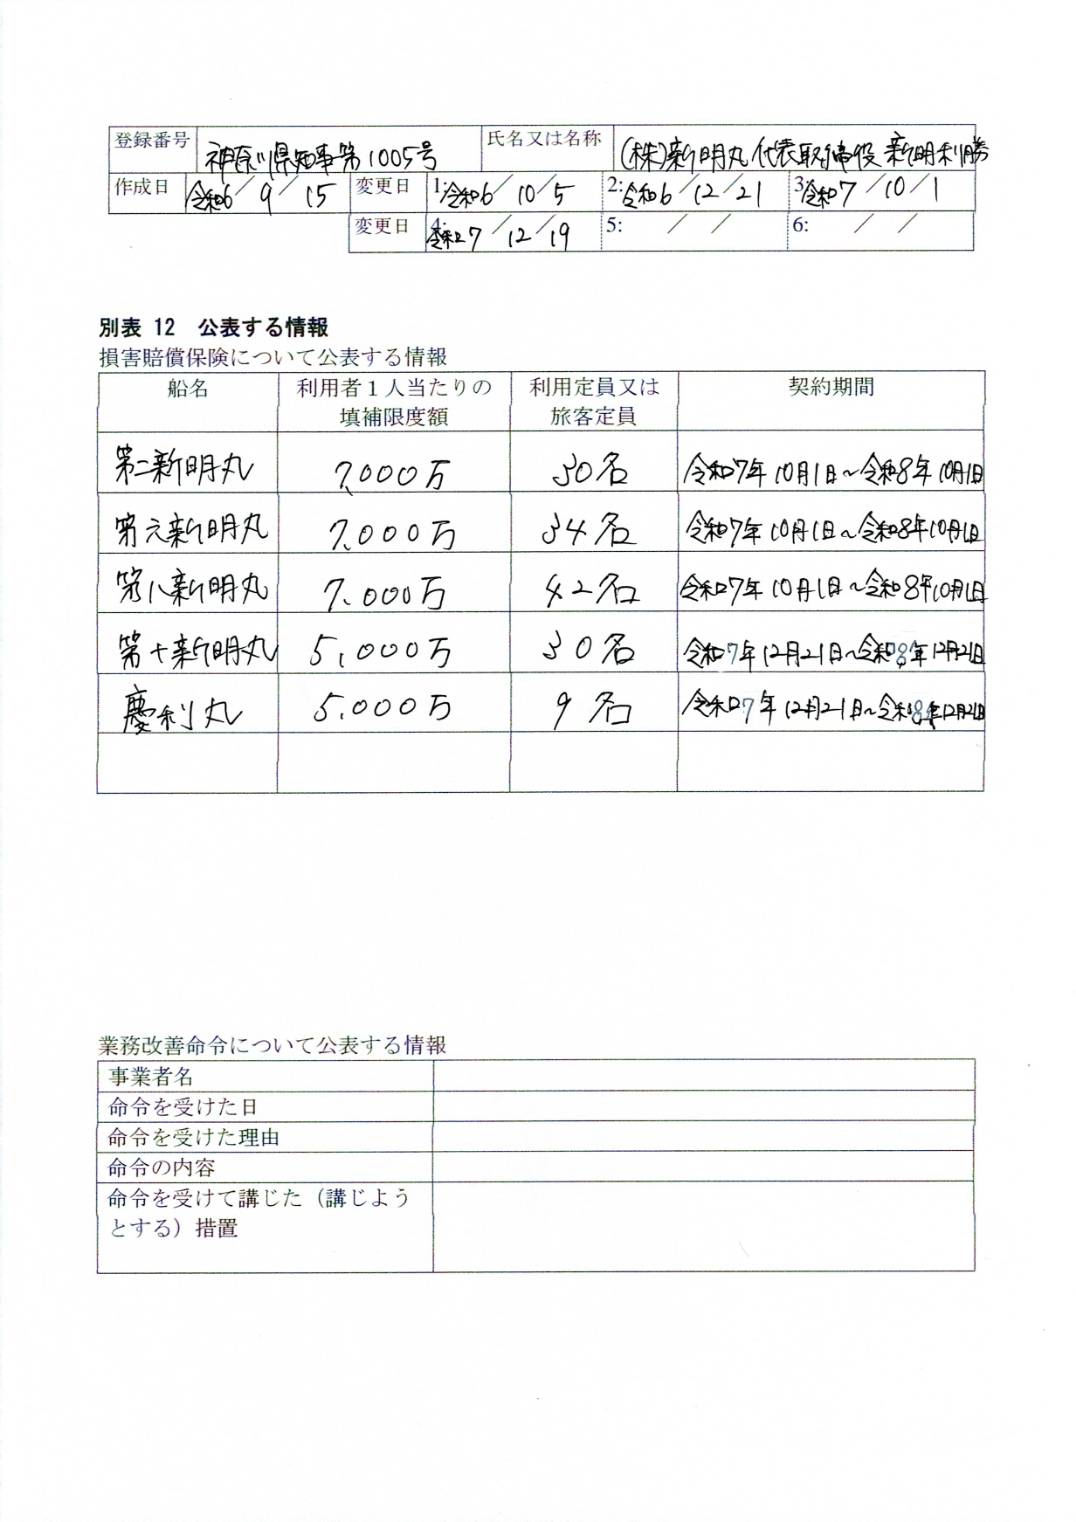 登録番号 神奈川県知事第1005号 氏名又は名称 (株)新明丸 代表取締役 新明利勝
作成日 令和6/9/15 変更日 1:令和6/10/5 2:令和6/12/21 3:令和7/10/1
変更日 4:令和7/12/19 5: / / 6: / /
別表 12 公表する情報
損害賠償保険について公表する情報
船名 利用者1人当たりの 利用定員又は 契約期間
填補限度額 旅客定員
第二新明丸 7,000万 30名 令和7年10月1日~令和8年10月1日
第六新明丸 7,000万 34名 令和7年10月1日~令和8年10月1日
第八新明丸 7,000万 42名 令和7年10月1日~令和8年10月1日
第十新明丸 5,000万 30名 令和7年12月21日~令和8年12月21日
慶利丸 5,000万 9名 令和7年12月21日~令和8年12月21日
業務改善命令について公表する情報
事業者名
命令を受けた日
命令を受けた理由
命令の内容
命令を受けて講じた(講じよう
とする)措置